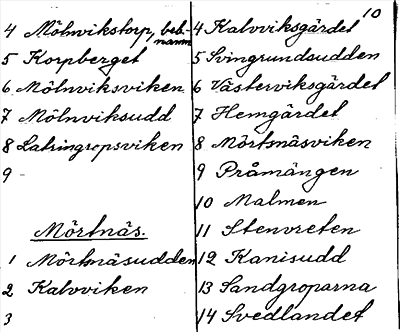 4 Mölnvikstorp, beb.-
namn
5 Korpberget
6 Mölnviksviken
7 Mölnviksudd
8 Latringropsviken
9 -
Mörtnäs.
1 Mörtnäsudden
2 Kalvviken
3
10
4 Kalvviksgärdet
5 Svingrundsudden
6 Västerviksgärdet
7 Hemgärdet
8 Mörtsnäsviken
9 Pråmängen
10 Malmen
11 Stenvreten
12 Kanisudd
13 Sandgroparna
14 Svedlandet